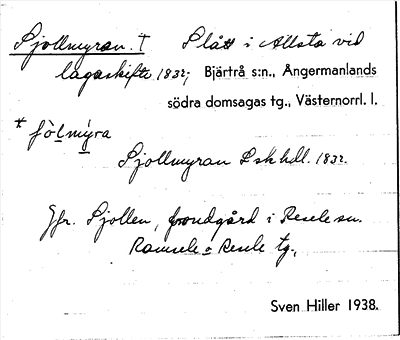 Sjollmyran. † Slått i Allsta vid
lagaskifte 1832; Bjärtrå s:n., Ångermanlands
södra domsagas tg., Västernorrl. l.
* fòlmýra
Sjollmyran Lskhdl. 1832.
Jfr. Sjollen, frondgård i Resele sn.
Ramsele o Resele tg.,
Sven Hiller 1938.